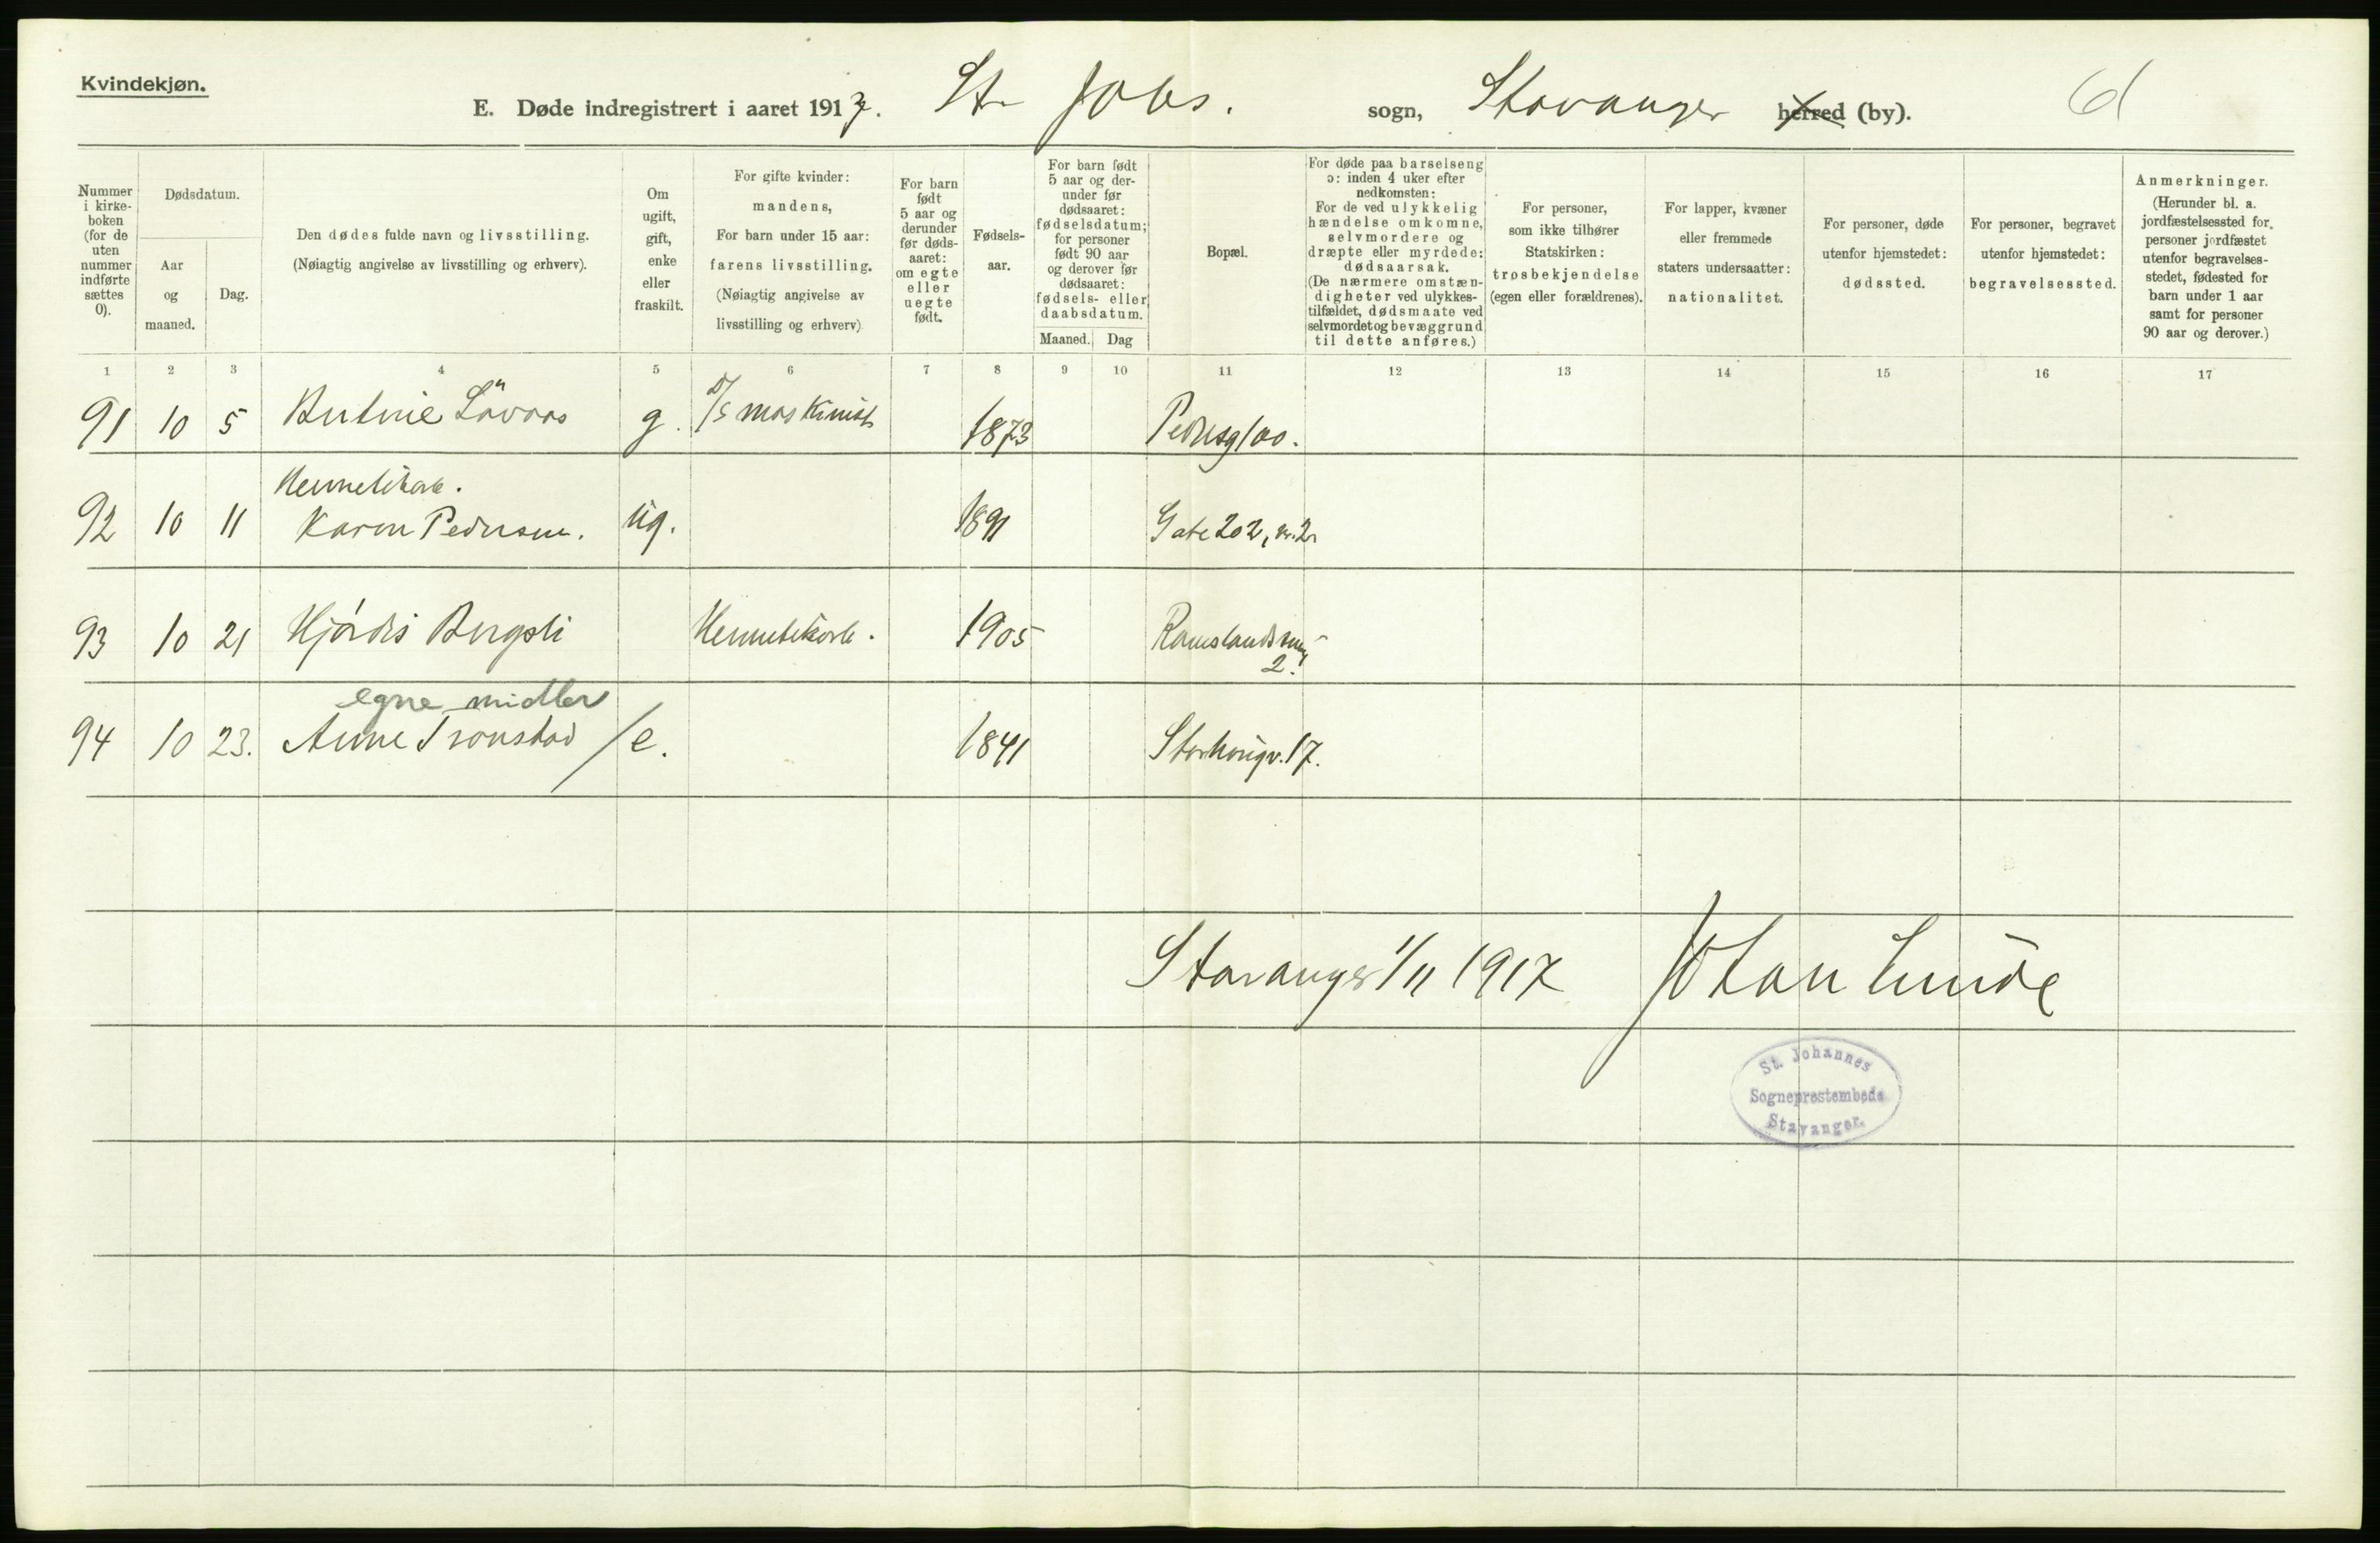 Kvindekjøn.
E. Døde indregistrert i aaret 1917. St. Johs. sogn, Stavanger herred (by). 61
Nummer i kirke-boken (for de uten nummer indførte sættes 0).
Dødsdatum.
Aar og maaned.
Dag.
Den dødes fulde navn og livsstilling.
(Nøiagtig angivelse av livsstilling og erhverv).
Om ugift, gift, enke eller fraskilt.
For gifte kvinder:
mandens,
For barn under 15 aar:
farens livsstilling.
(Nøiagtig angivelse av
livsstilling og erhverv)
For barn født 5 aar og derunder før døds-aaret: om egte eller uegte født.
Fødsels-aar.
For barn født 5 aar og der-under før dødsaaret: fødselsdatum; for personer født 90 aar og derover før dødsaaret: fødsels- eller daabsdatum.
Maaned. Dag
Bopæl.
For døde paa barselseng
ɔ: inden 4 uker efter
nedkomsten:
For de ved ulykkelig
hændelse omkomne,
selvmordere og
dræpte eller myrdede:
dødsaarsak.
(De nærmere omstæn-
digheter ved ulykkes-
tilfældet, dødsmaate ved
selvmordet og bevæggrund
til dette anføres.)
For personer,
som ikke tilhører
Statskirken:
trosbekjendelse
(egen eller forældrenes).
For lapper, kvæner
eller fremmede
staters undersaatter:
nationalitet.
For personer, døde
utenfor hjemstedet:
dødssted.
For personer, begravet
utenfor hjemstedet:
begravelsessted.
Anmerkninger.
(Herunder bl. a.
jordfæstelsessted for
personer jordfæstet
utenfor begravelses-
stedet, fødested for
barn under 1 aar
samt for personer
90 aar og derover.)
1 2 3 4 5 6 7 8 9 10 11 12 13 14 15 16 17
91 10 5 Bertine Lövaas g. D/S maskinist 1873 Pedersg 100.
Hermetikarb.
92 10 11 Karen Pedersen. ug. 1891 Gate 202, nr. 2
93 10 21 Hjördis Bergsli Hermetikarb. 1905 Ramslandsmug 2.
egne midler
94 10 23. Anne Tronstad / e. 1841 Storhaugv. 17.
Stavanger 1/11 1917 Johan Lunde
St. Johannes
Sogneprestembede
Stavanger.